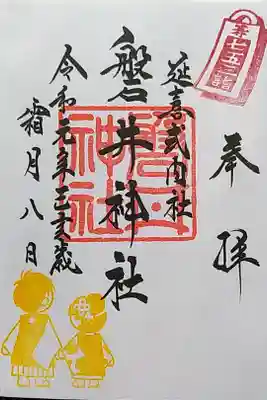 奉拝
七五三詣
延喜式内社
磐井神社
令和元年己亥歳
霜月八日
磐井神社